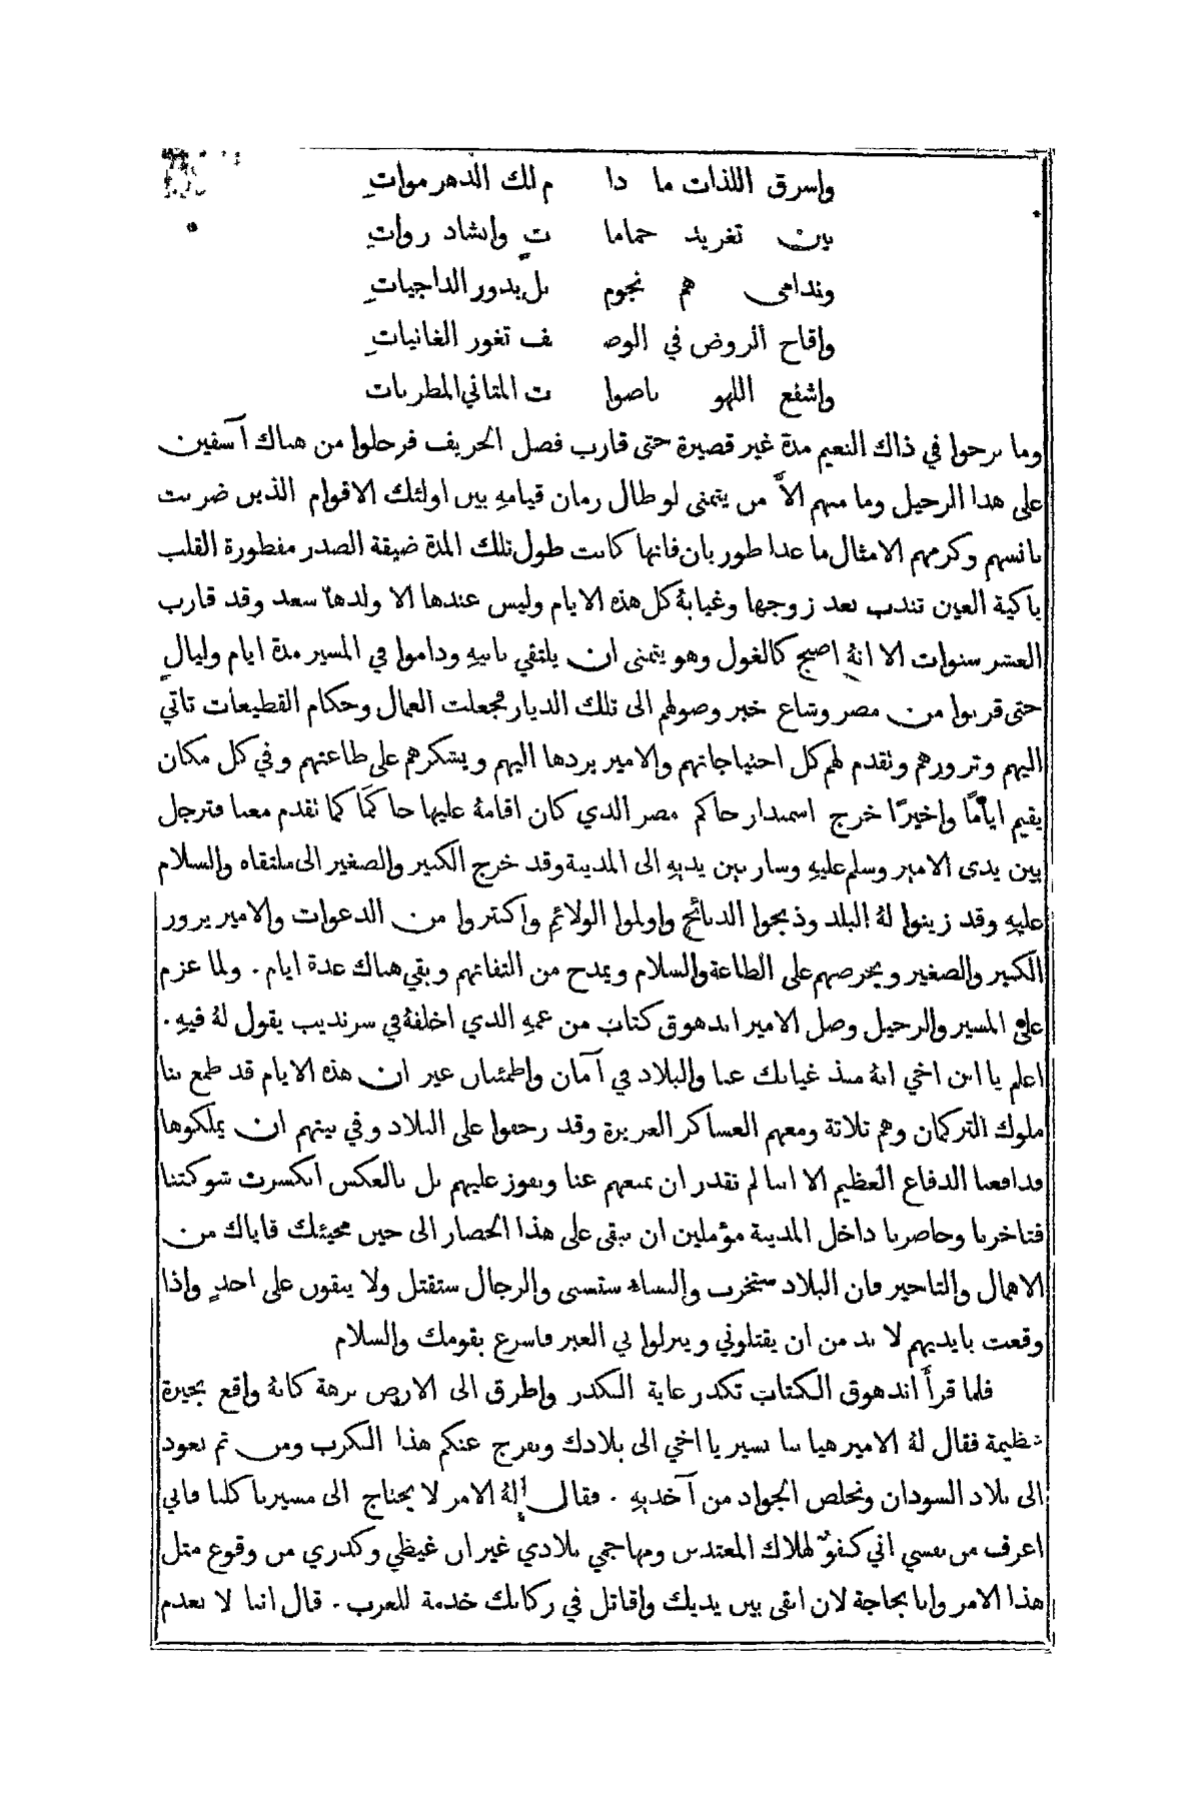 واسرق اللذات ما دا م لك الدهر مواتِ
بين تغريد حماما تٍ وانشاد رواتِ
وندامى هم نجوم بل بدور الداجياتِ
واقاح الروض في الوص ف ثغور الغانياتِ
واشفع اللهو باصوا ت المثاني المطربات
وما برحوا في ذاك النعيم مدة غير قصيرة حتى قارب فصل الخريف فرحلوا من هناك آسفين
على هذا الرحيل وما منهم الاَّ من يتمنى لو طال زمان قيامهِ بين اولئك الاقوام الذين ضربت
بانسهم وكرمهم الامثال ما عدا طوربان فانها كانت طول تلك المدة ضيقة الصدر مفطورة القلب
باكية العين تندب بعد زوجها وغيابهُ كل هذه الايام وليس عندها الا ولدها سعد وقد قارب
العشر سنوات الا انهُ اصبح كالغول وهو يتمنى ان يلتقي بابيهِ وداموا في المسير مدة ايام وليالٍ
حتى قربوا من مصر وشاع خبر وصولهم الى تلك الديار فجعلت العمال وحكام القطيعات تاتي
اليهم وتزورهم وتقدم لهم كل احتياجاتهم والامير يردها اليهم ويشكرهم على طاعتهم وفي كل مكان
يقيم ايامًا واخيرًا خرج اسمندار حاكم مصر الذي كان اقامهُ عليها حاكمًا كما تقدم معنا فترجل
بين يدى الامير وسلم عليهِ وسار بين يديهِ الى المدينة وقد خرج الكبير والصغير الى ملتقاه والسلام
عليهِ وقد زينوا لهُ البلد وذبحوا الذبائح واولموا الولائم واكثروا من الدعوات والامير يزور
الكبير والصغير ويحرصهم على الطاعة والسلام ويمدح من التفاتهم وبقي هناك عدة ايام . ولما عزم
على المسير والرحيل وصل الامير اندهوق كتاب من عمهِ الذي اخلفهُ في سرنديب يقول لهُ فيهِ .
اعلم يا ابن اخي انهُ منذ غيابك عنا والبلاد في آمان واطمئنان غير ان هذه الايام قد طمع بنا
ملوك التركمان وهم ثلاثة ومعهم العساكر الغزيرة وقد زحفوا على البلاد وفي نيتهم ان يملكوها
فدافعنا الدفاع العظيم الا اننا لم نقدر ان نمنعهم عنا ونفوز عليهم بل بالعكس انكسرت شوكتنا
فتاخرنا وحاصرنا داخل المدينة مؤملين ان نبقى على هذا الحصار الى حين مجيئك فاياك من
الاهمال والتاخير فان البلاد ستخرب والنساء ستسبى والرجال ستقتل ولا يبقون على احدٍ واذا
وقعت بايديهم لا بد من ان يقتلوني وينزلوا بي العبر فاسرع بقومك والسلام
فلما قرأ اندهوق الكتاب تكدر غاية الكدر واطرق الى الارض برهة كانهُ واقع بحيرة
عظيمة فقال لهُ الامير هيا بنا نسير يا اخي الى بلادك ونفرج عنكم هذا الكرب ومن ثم نعود
الى بلاد السودان ونخلص الجواد من آخذيهِ . فقال لهُ الامر لا يحتاج الى مسيرنا كلنا فاني
اعرف من نفسي اني كفوٌ لهلاك المعتدين ومهاجمي بلادي غير ان غيظي وكدري من وقوع مثل
هذا الامر وانا بحاجة لان ابقى بين يديك واقاتل في ركابك خدمة للعرب . قال اننا لا نعدم